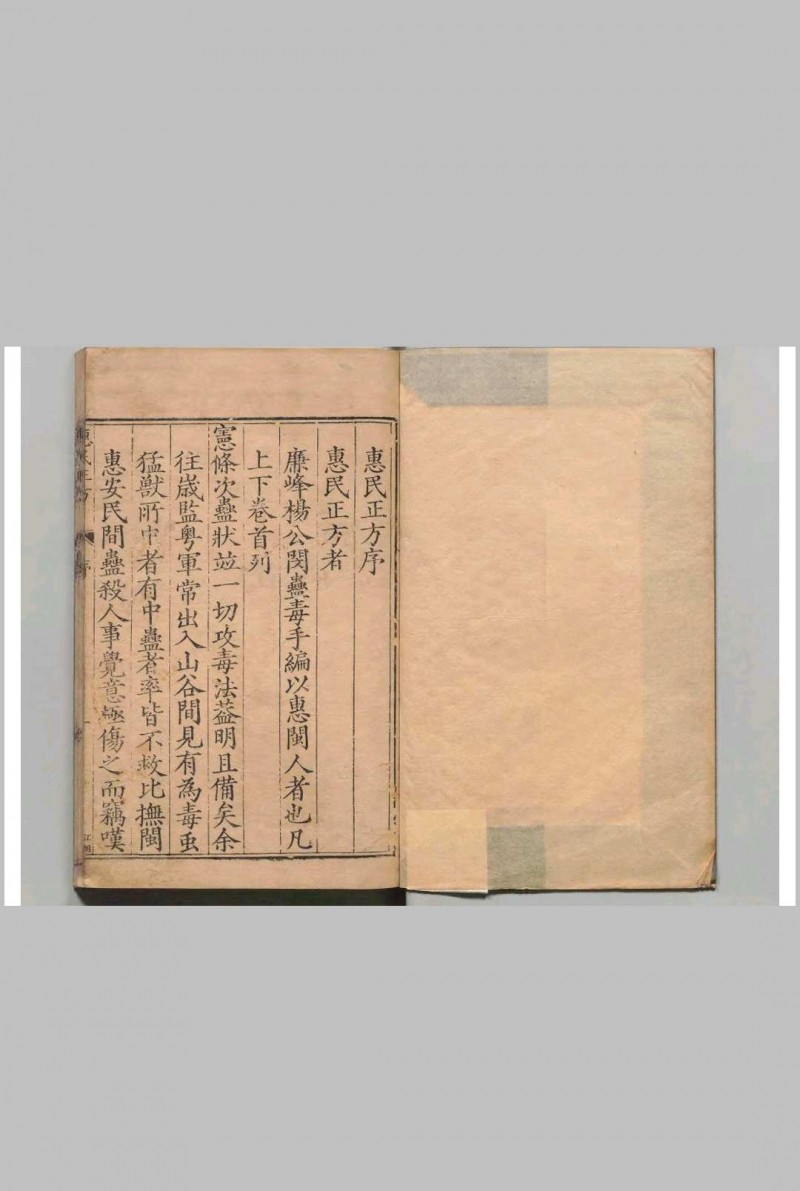 惠民正方序
惠民正方者
廉峰楊公閔蠱毒手編以惠閩人者也凡
上下卷首列
憲條次蠱狀並一切攻毒法葢明且備矣余
往歲監粤軍常出入山谷間見有為毒虫
猛獸所中者有中蠱者率皆不救比撫閩
惠安民間蠱殺人事覺意極傷之而竊嘆
惠民正方
序